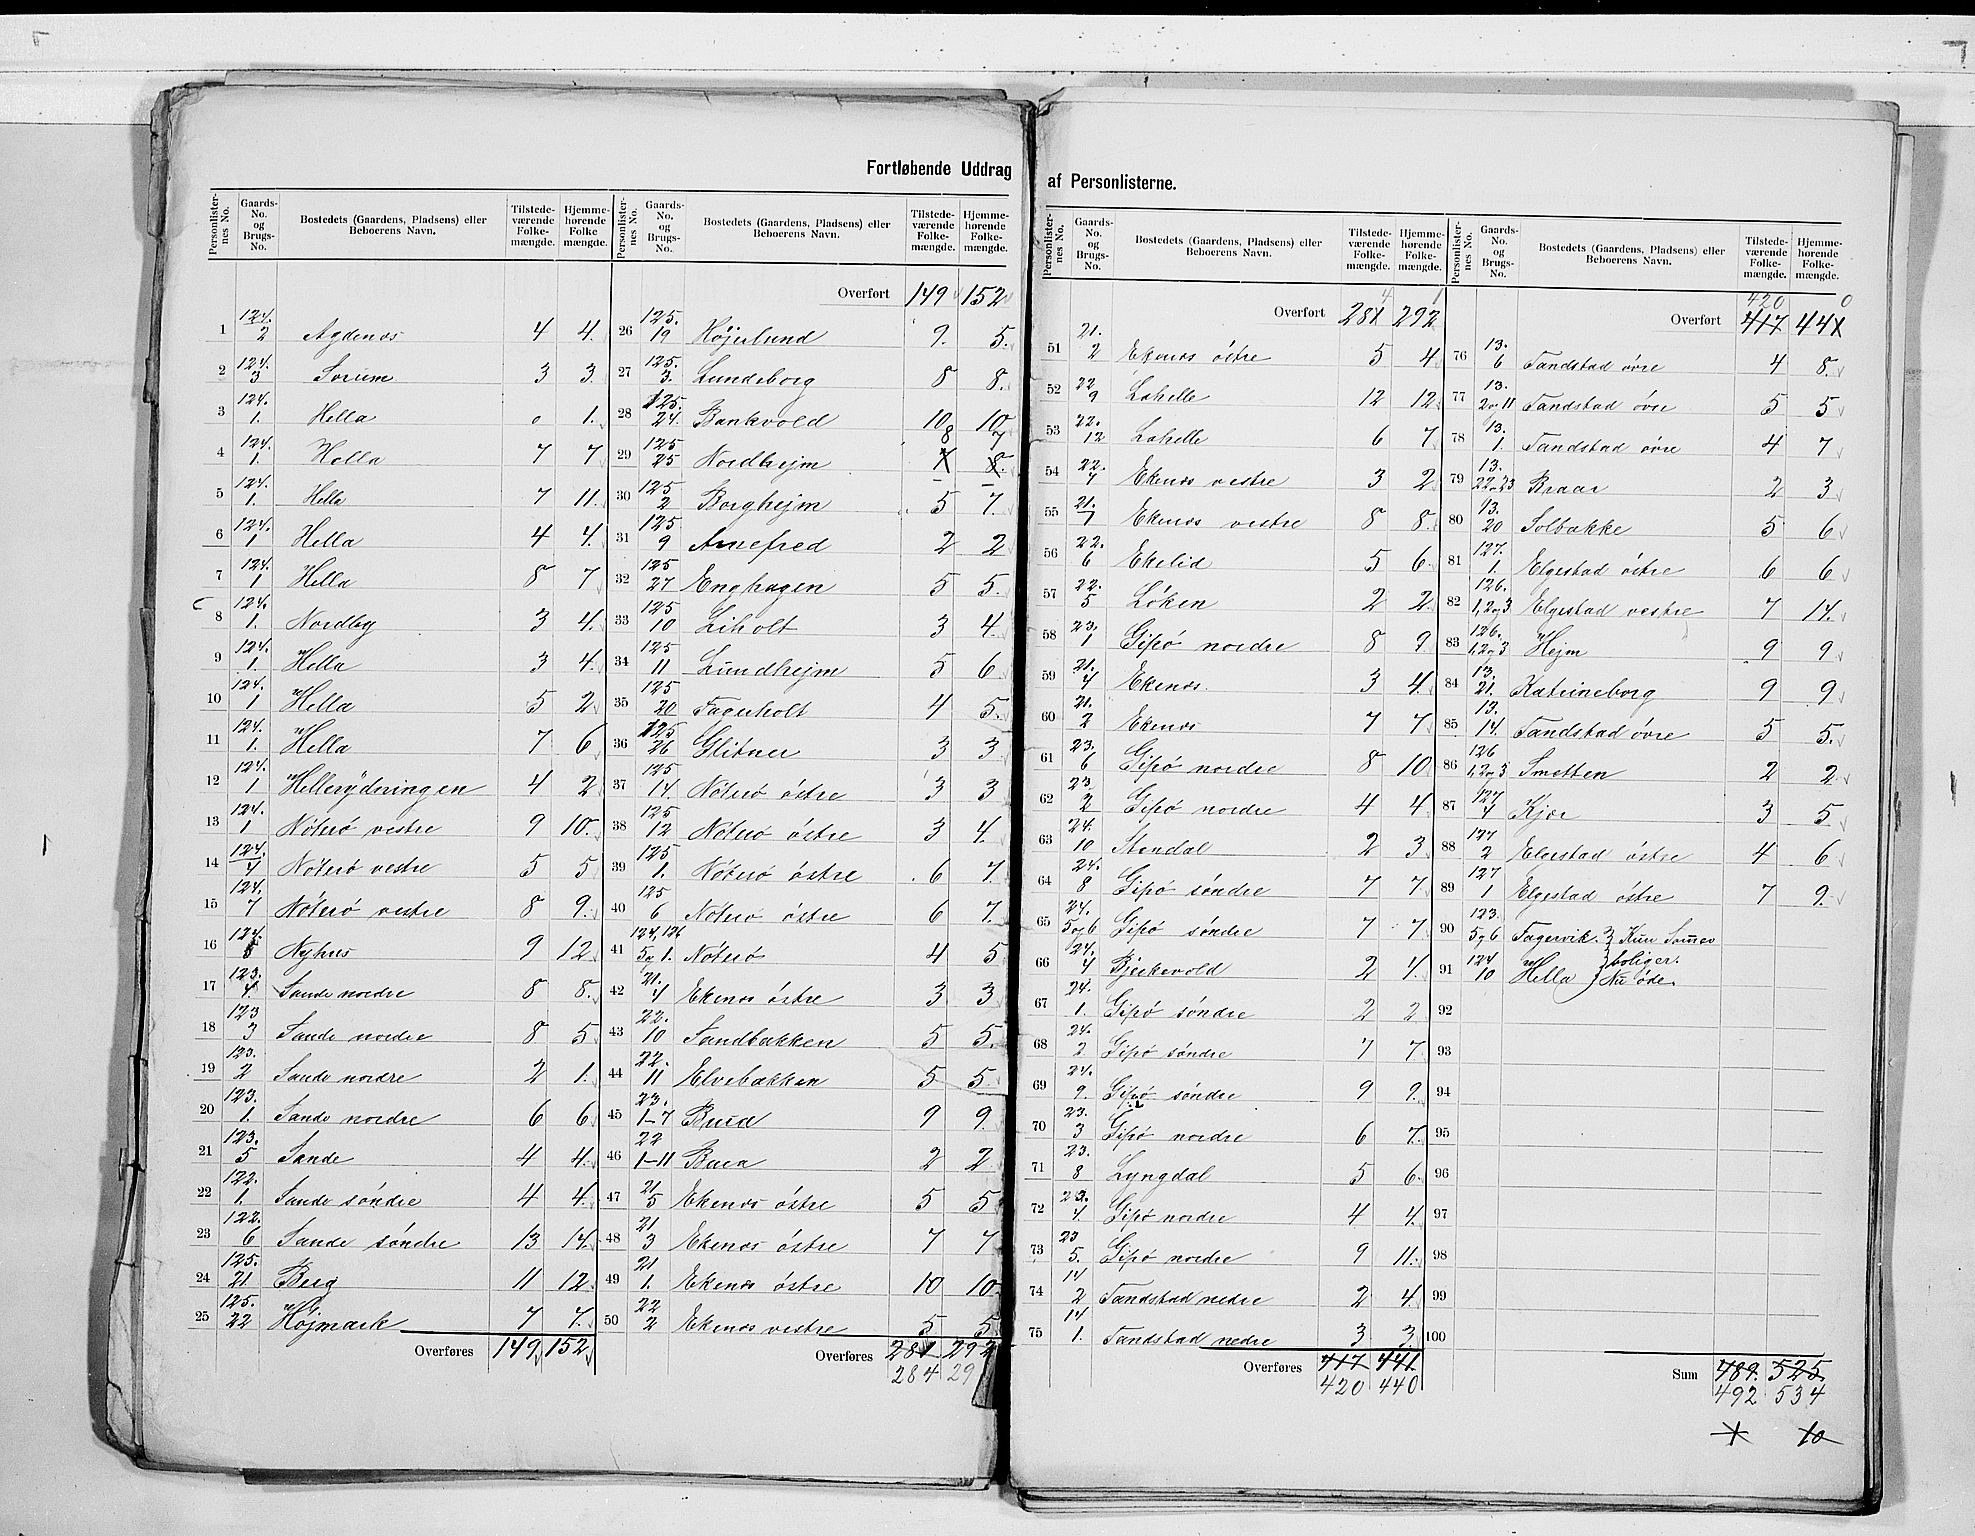 Fortløbende Uddrag af Personlisterne.
Personlisternes No. Gaards-No. og Brugs-No. Bostedets (Gaardens, Pladsens) eller Beboerens Navn. Tilstedeværende Folkemængde. Hjemmehørende Folkemængde.
1 124. 2 Agdenes 4 4.
2 124. 3 Sorum 3 3.
3 124. 1. Hella 0 1.
4 124. 1. Hella 7 7
5 124. 1. Hella 7 11.
6 124. 1 Hella 4 4.
7 124. 1 Hella 8 7
8 124. 1. Nordby 3 4.
9 124. 1. Hella 3 4.
10 124. 1 Hella 5 2
11 124. 1. Hella 7 6
12 124. 1 Hellerydningen 4 2
13 124. 1 Nøterø vestre 9 10.
14 124. 4 Nøterø vestre 5 5
15 124. 7 Nøterø vestre 8 9.
16 124. 8 Nyhus 9 12
17 123. 4. Sande nordre 8 8.
18 123 3 Sande nordre 8 5
19 123. 2 Sande nordre 2 1.
20 123. 1. Sande nordre 6 6
21 123. 5 Sande 4 4.
22 122. 1. Sande søndre 4 4.
23 122. 6 Sande søndre 13 14.
24 125. 21. Berg 11 12.
25 125. 22 Højmark 7 7.
Overføres 149 152
Personlisternes No. Gaards-No. og Brugs-No. Bostedets (Gaardens, Pladsens) eller Beboerens Navn. Tilstedeværende Folkemængde. Hjemmehørende Folkemængde.
Overført 149 152
26 125. 19 Højelund 9. 5.
27 125. 3. Lundeborg 8 8.
28 125. 24. Bankvold 10 10
8 7
29 125 25 Nordhejm 7 8.
30 125 2 Borghejm 5 7.
31 125 9 Arnefred 2 2
32 125 27 Enghagen 5 5.
33 125 10 Liholt 3 4.
34 125 11 Lundhejm 5 6
35 125 20 Fagerholt 4 5.
36 125 26 Glitner 3 3
37 125 14 Nøterø østre 3 3
38 125 12 Nøterø østre 3 4.
39 125 1. Nøterø østre 6 7.
40 125 6 Nøterø østre 6 7.
41 124, 126 5 og 1. Nøterø 4 5
42 21. 4 Ekenes østre 3 3
43 22. 10 Sandbakken 5 5.
44 22. 11 Elvebakken 5 5.
45 23. 1-7 Buerd 9 9.
46 22 1-11 Buea 2 2
47 21. 5 Ekenes østre 5 5
48 21 3 Ekenes østre 7 7
49 21 1. Ekenes østre 10 10.
50 22 2 Ekenes vestre 5 5
Overføres 281 292
284 29
Personlisternes No. Gaards-No. og Brugs-No. Bostedets (Gaardens, Pladsens) eller Beboerens Navn. Tilstedeværende Folkemængde. Hjemmehørende Folkemængde.
4 1
Overført 281 292
51 21. 2 Ekenes østre 5 4
52 22 9 Lahelle 12 12
53 22. 12 Lahelle 6 7
54 22. 7 Ekenes vestre 3 2
55 21. 7 Ekenes vestre 8 8.
56 22. 6 Ekelid 5 6
57 22. 5 Løken 2 2
58 23. 1 Gipø nordre 8 9
59 21. 4 Ekenes. 3 4.
60 21. 2 Ekenes 7 7
61 23. 6 Gipø nordre 8 10
62 23. 2 Gipø nordre 4 4
63 24. 10 Stendal 2 3
64 24. 8 Gipø søndre 7 7
65 24. 5 og 6 Gipø søndre 7 7
66 24. 4 Bjerkevold 2 4.
67 24. 1. Gipø søndre 2 2
68 24. 2 Gipø søndre 7 7
69 24. 9. Gipø søndre 9 9.
70 23. 3 Gipø nordre 6 7.
71 23. 8 Lyngdal 5 6
72 23. 4. Gipø nordre 4 4.
73 23 5. Gipø nordre 9 11.
74 14 2 Tandstad nedre 2 4.
75 14. 1. Tandstad nedre 3 3.
Overføres 417 441.
420 440
Personlisternes No. Gaards-No. og Brugs-No. Bostedets (Gaardens, Pladsens) eller Beboerens Navn. Tilstedeværende Folkemængde. Hjemmehørende Folkemængde.
420 0
Overført 417 441
76 13. 6 Tandstad øvre 4 8.
77 13. 2 og 11 Tandstad øvre 5 5
78 13. 1. Tandstad øvre 4 7
79 13. 22 og 23 Braar 2 3
80 13. 20 Solbakke 5 6
81 127. 1. Elgestad østre 6 6
82 126. 1, 2 og 3 Elgestad vestre 7 14.
83 126. 1, 2 og 3 Hejm 9 9
84 13. 21. Katrineborg 9 9
85 13. 14. Tandstad øvre 5 5.
86 126 1, 2 og 3 Smetten 2 2
87 127 4 Kjær 3 5
88 127 2 Elgestad østre 4 6
89 127 1 Elgestad østre 7 9.
90 123. 5 og 6 Fagervik. } Kun Sommer
91 124 10 Hella } boliger. Nu øde.
92
93
94
95
96
97
98
99
100
Sum 489. 525
492 534
10